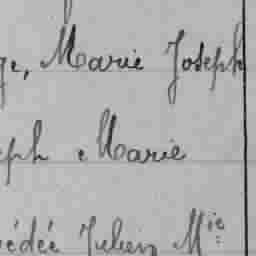 ge, Marie Joseph
eph Marie
édée Julien M^ie